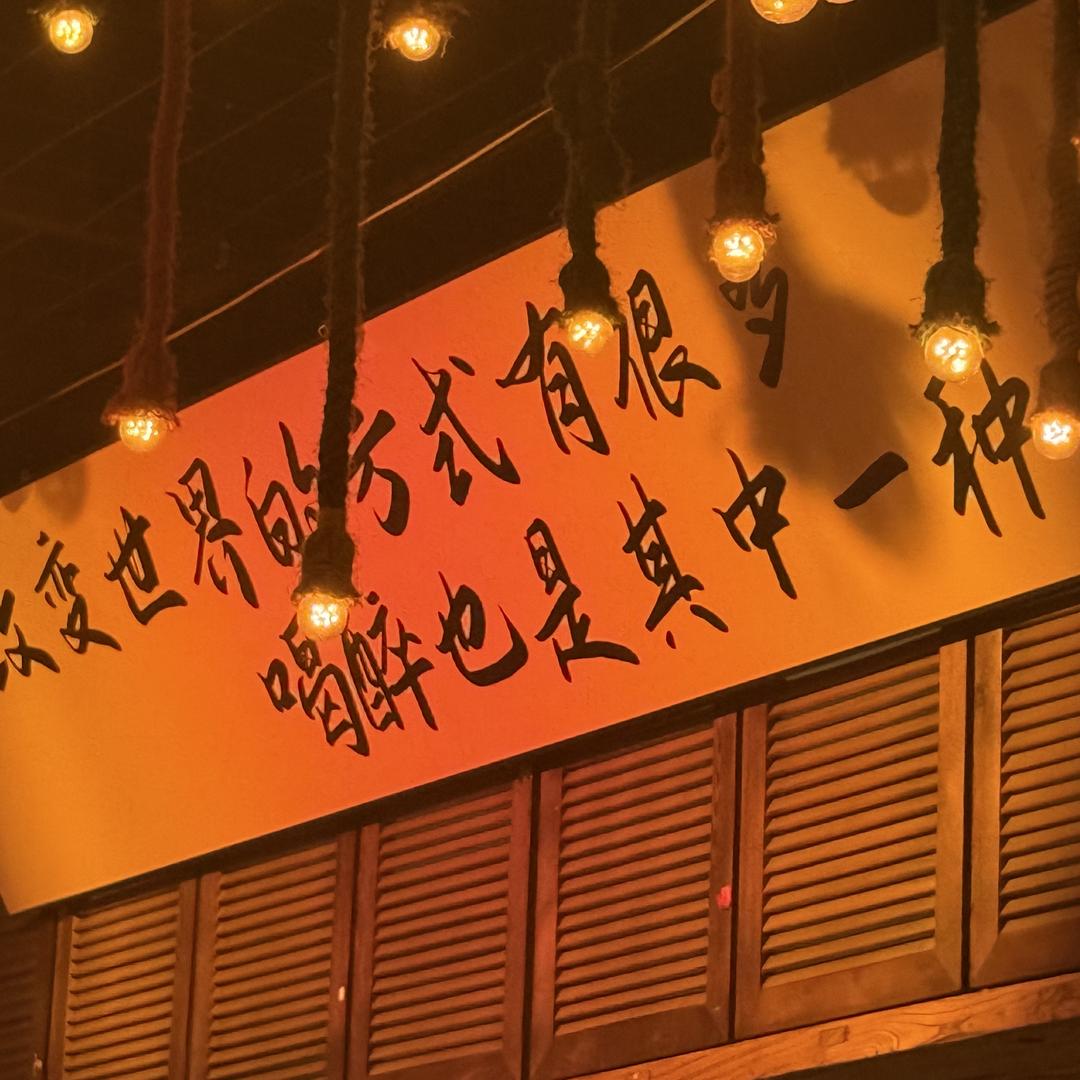 改变世界的方式有很多
喝醉也是其中一种